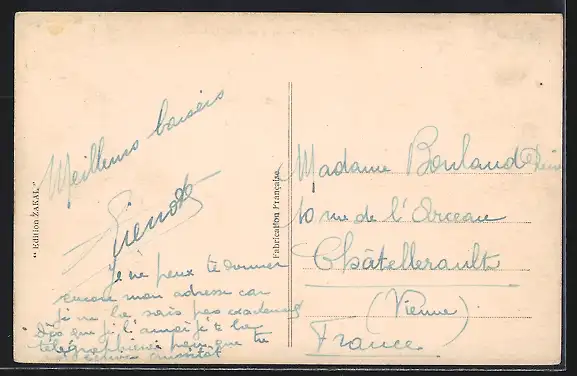 Meilleurs baisers
Pierrot
Je ne peux te donner
encore mon adresse car
je ne la sais pas exactement
Dès que je l'aurai je te la
télégraphierai pour que tu
écrives aussitôt
" Edition ZAKAL "
Fabrication Française
Madame Boulaud
10 rue de l'Arceau
Châtellerault
(Vienne)
France